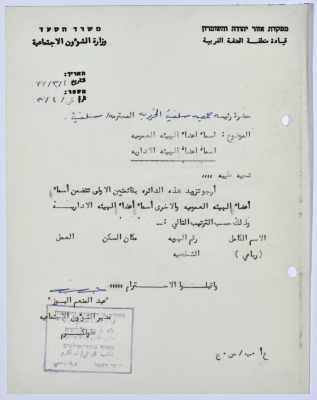 משרד הסעד
وزارة الشؤون الاجتماعية
מפקדת אזור יהודה והשומרון
قيادة منطقة الضفة الغربية
תאריך:
التاريخ ٧٧/٣/١
מספר:
الرقم ش/٤/
حضرة رئيسة جمعية سلفيت الخيرية المحترمة/ سلفيت
الموضوع : اسماء اعضاء الهيئه العموميه
اسماء اعضاء الهيئه الاداريه
تحيه طيبه ،،،،
أرجو تزويد هذه الدائره بقائمتين الاولى تتضمن أسماء
أعضاء الهيئه العموميه والاخرى أسماء أعضاء الهيئه الاداريــة
وذلك حسب الترتيب التالي : ــ
الاسم الكامل رقم الهويه مكان السكن العمل
( رباعي ) الشخصيه
واقبلــوا الاحــترام ،،،،،
عبد المنعم
مدير الشؤون الاجتماعيه
طولكرم